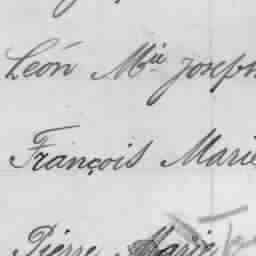 Léon Mie Joseph
François Marie
Pierre Marie